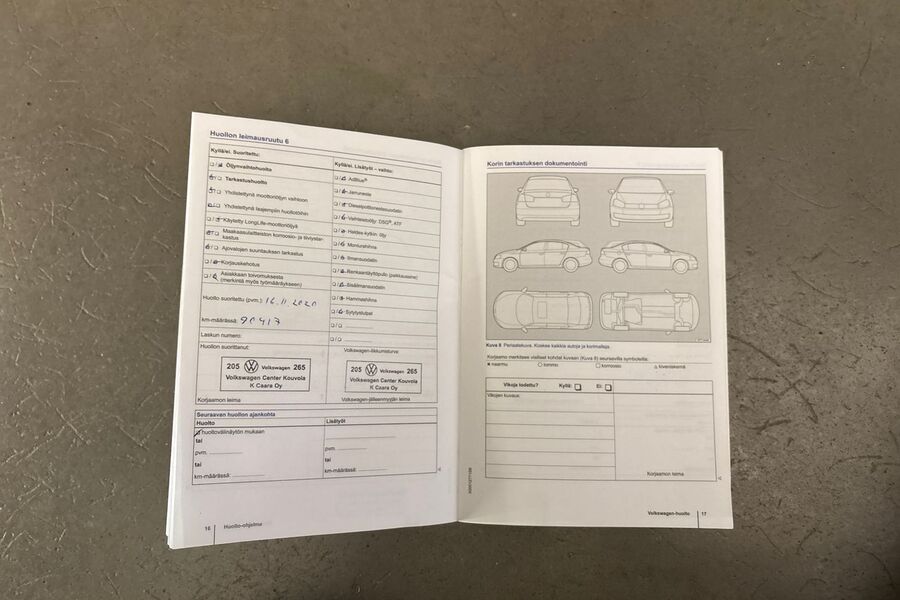 Huollon leimausruutu 6
Kyllä/ei. Suoritettu:
Öljynvaihtohuolto
Tarkastushuolto
Yhdistettynä moottoriöljyn vaihtoon
Yhdistettynä laajempiin huoltotöihin
Käytetty LongLife-moottoriöljyä
Maakaasulaitteiston korroosio- ja tiiviystar-
kastus
Ajovalojen suuntauksen tarkastus
Korjauskehotus
Asiakkaan toivomuksesta
(merkintä myös työmääräykseen)
Huolto suoritettu (pvm.): 16.11.2020
km-määrässä: 90417
Laskun numero:
Huollon suorittanut:
205 Volkswagen 265
Volkswagen Center Kouvola
K Caara Oy
Korjaamon leima
Kyllä/ei. Lisätyöt – vaihto:
AdBlue®
Jarruneste
Dieselpolttonesteensuodatin
Vaihteistoöljy: DSG®, ATF
Haldex-kytkin: öljy
Moniurahihna
Ilmansuodatin
Renkaantäyttöpullo (paikkausaine)
Sisäilmansuodatin
Hammashihna
Sytytystulpat
Volkswagen-liikkumisturva:
205 Volkswagen 265
Volkswagen Center Kouvola
K Caara Oy
Volkswagen-jälleenmyyjän leima
Seuraavan huollon ajankohta
Huolto
huoltovälinäytön mukaan
tai
pvm.
tai
km-määrässä:
Lisätyöt
pvm.
tai
km-määrässä:
16 Huolto-ohjelma
Korin tarkastuksen dokumentointi
Kuva 8 Periaatekuva. Koskee kaikkia autoja ja korimalleja.
Korjaamo merkitsee vialliset kohdat kuvaan (Kuva 8) seuraavilla symboleilla:
naarmu lommo korroosio kiveniskemä
Vikoja todettu? Kyllä: Ei:
Vikojen kuvaus:
Korjaamon leima
Volkswagen-huolto 17